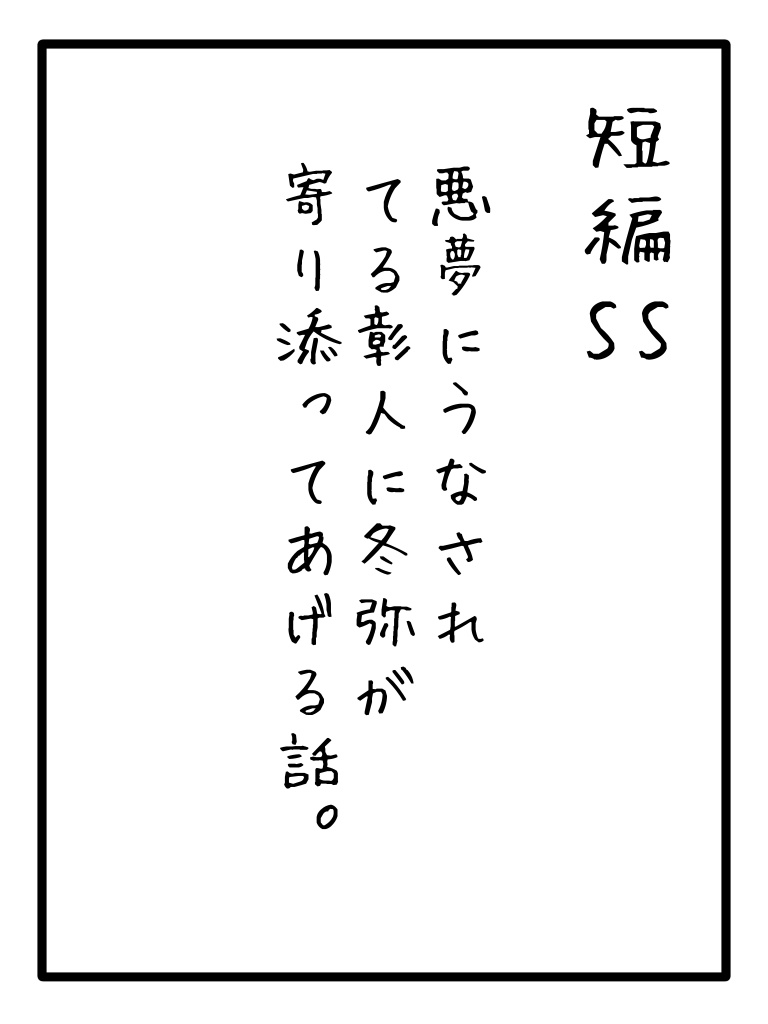 短編SS
悪夢にうなされ
てる彰人に冬弥が
寄り添ってあげる話。